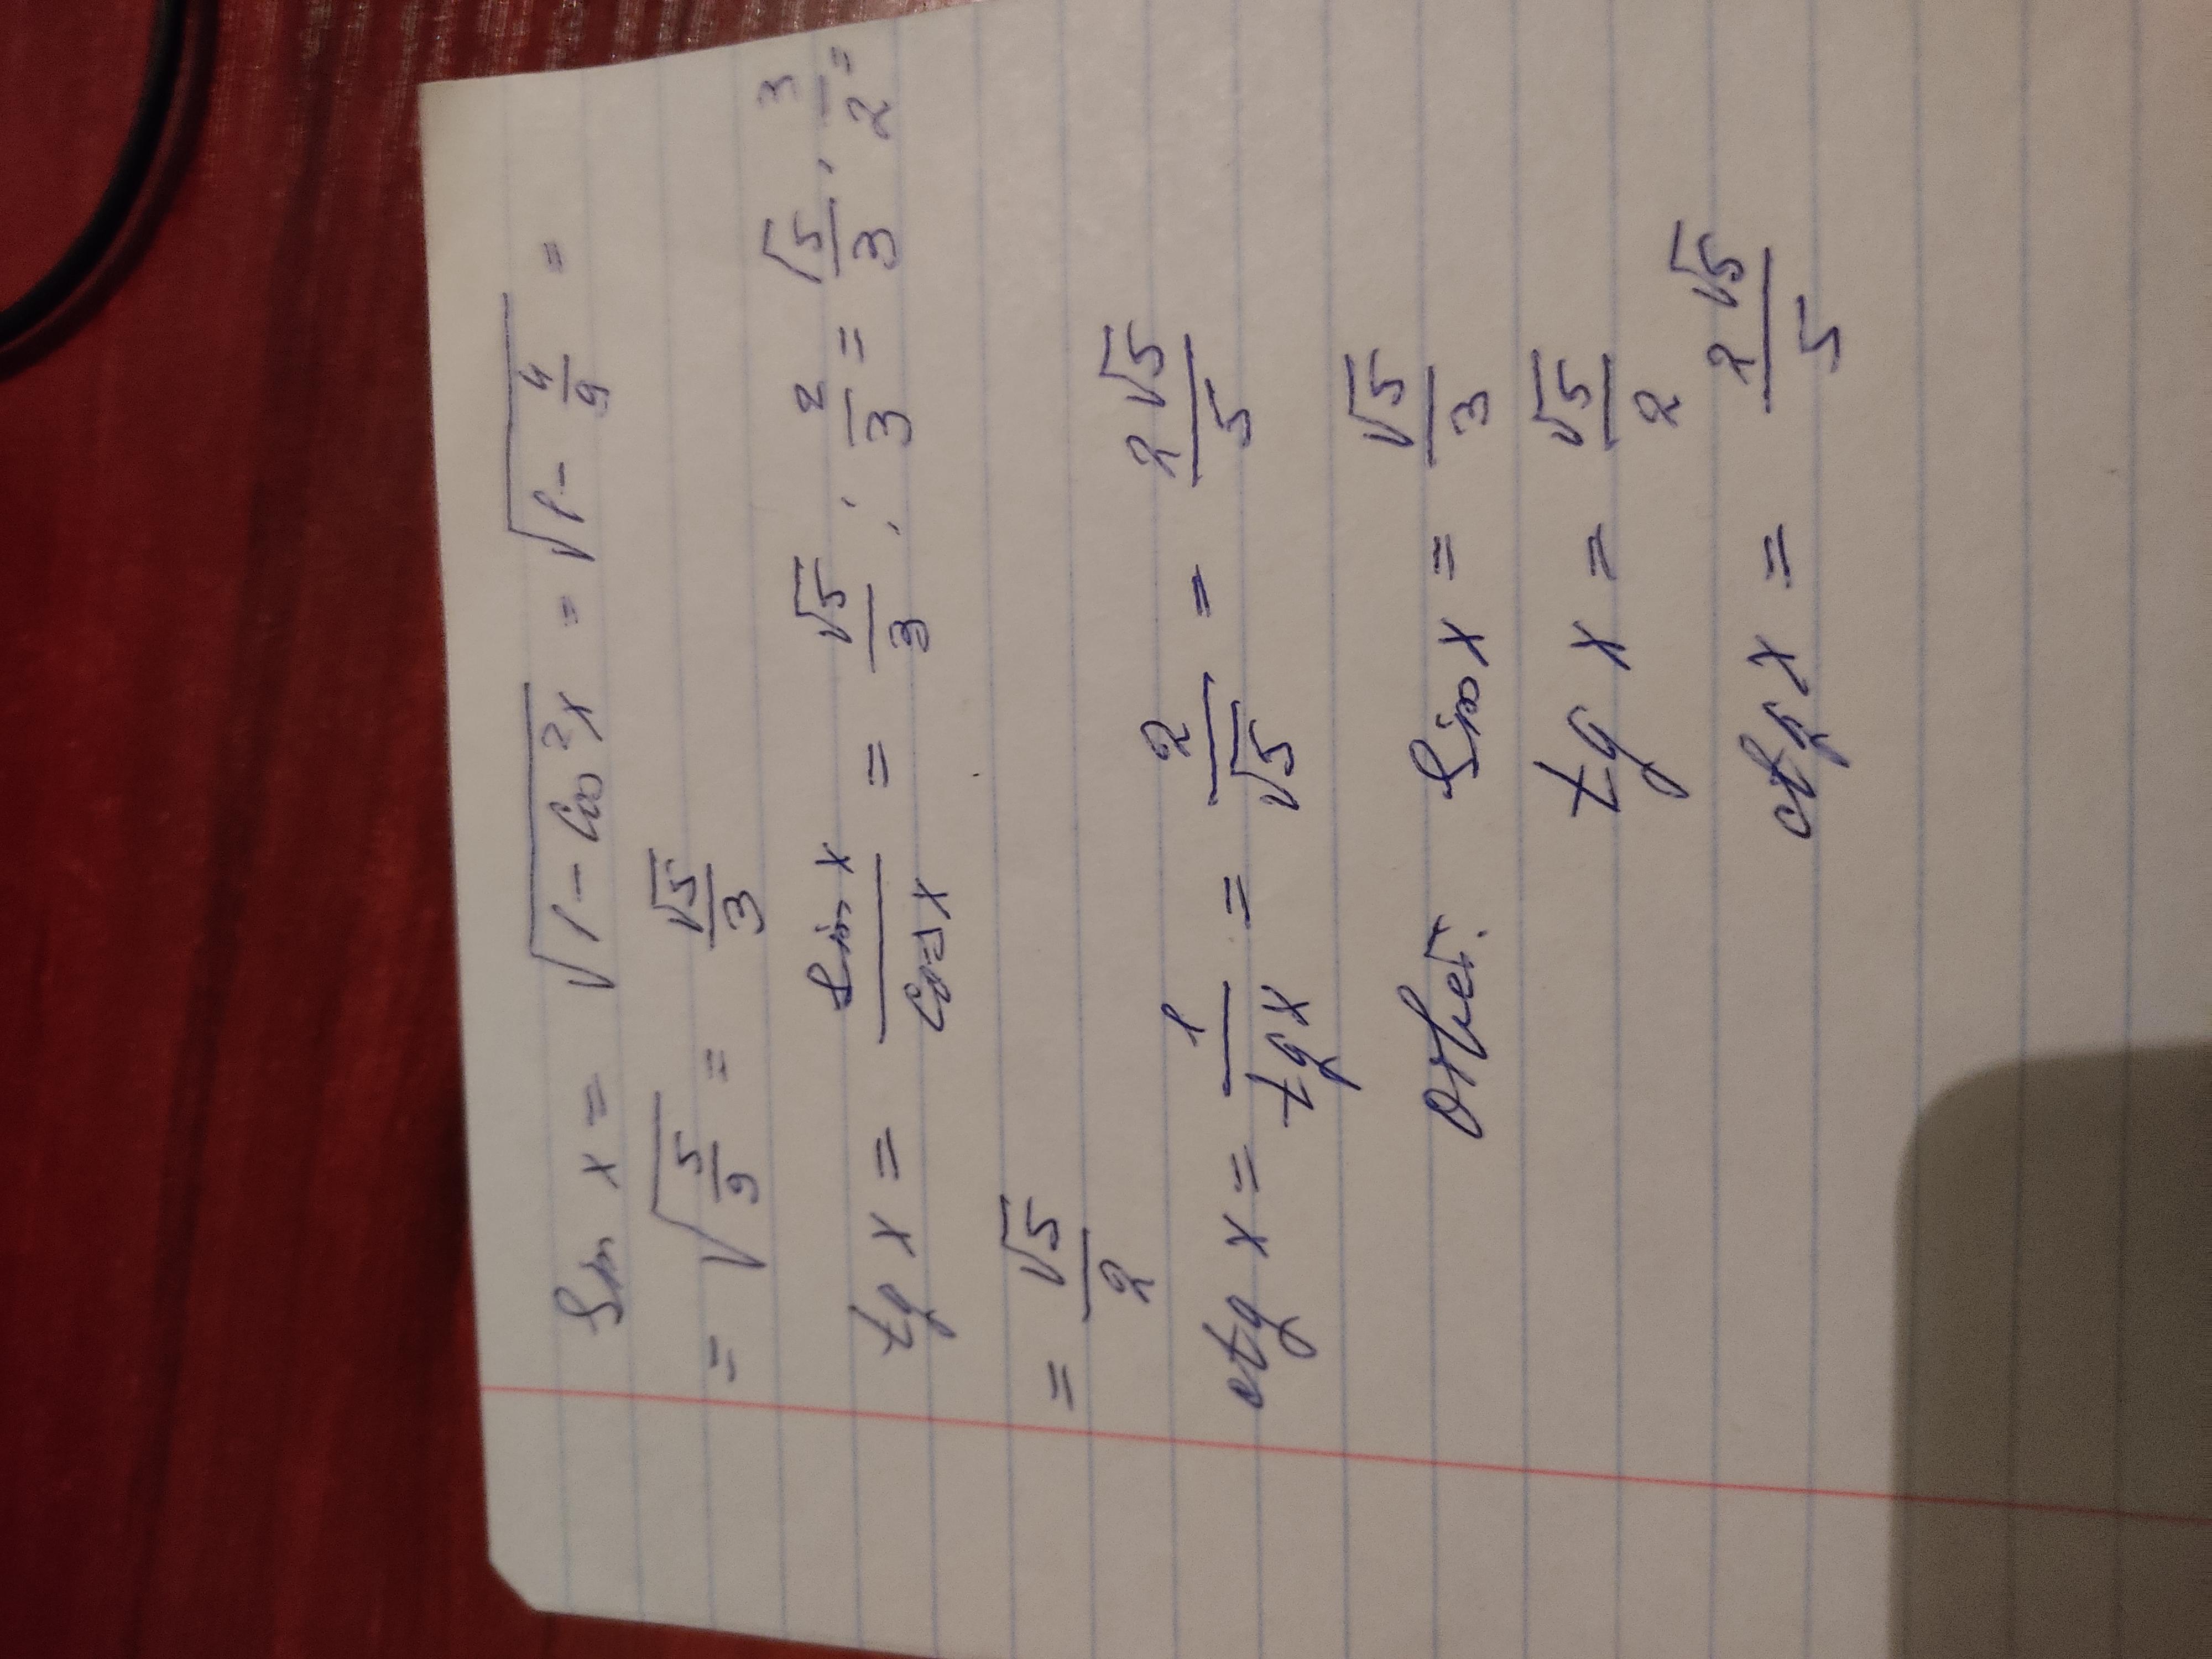 Sin x = √(1 - Cos²x) = √(1 - 4/9) =
= √(5/9) = √5/3
tg x = Sin x/Cos x = √5/3 : 2/3 = √5/3 · 3/2 =
= √5/2
ctg x = 1/tg x = 2/√5 = 2√5/5
Ответ: Sin x = √5/3
tg x = √5/2
ctg x = 2√5/5